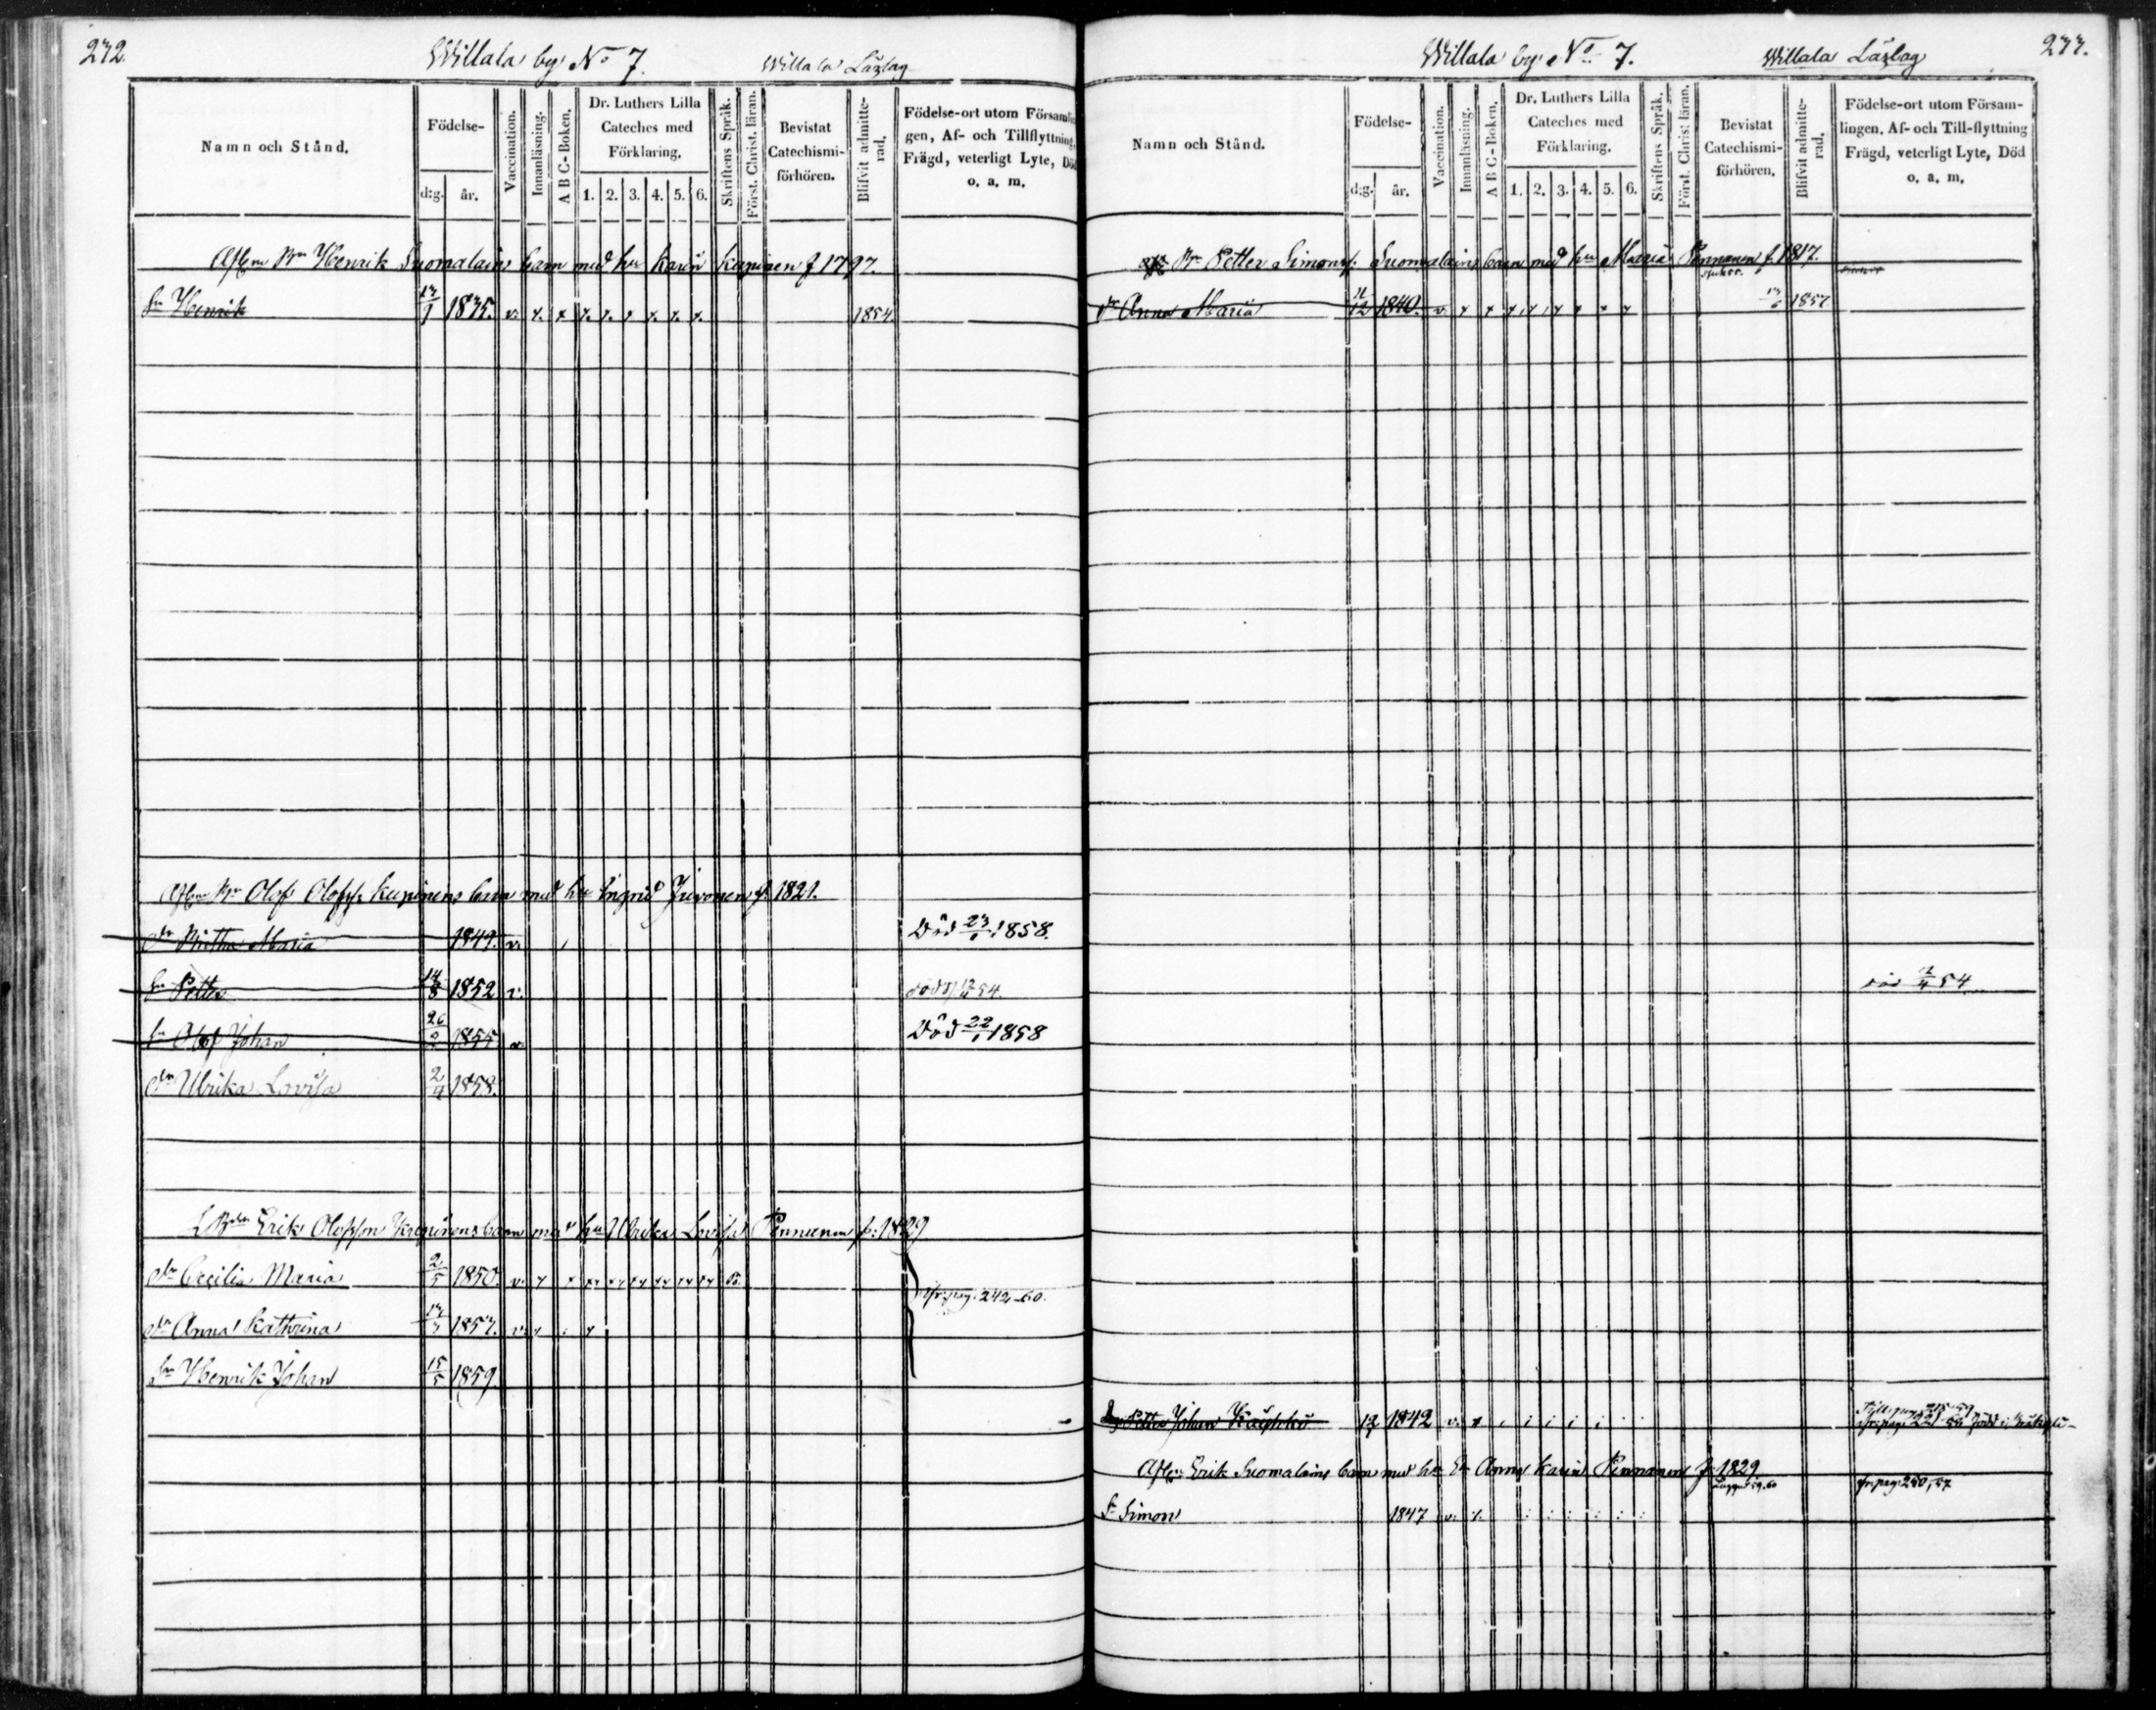 272.
Willala by No 7.
Willala Läslag
Namn och Stånd.
Födelse-
d:g. år.
Vaccination.
Innanläsning.
A B C-Boken.
Dr. Luthers Lilla
Cateches med
Förklaring.
1. 2. 3. 4. 5. 6.
Skriftens Språk.
Först. Christ. läran.
Bevistat
Catechismi-
förhören.
Blifvit admitte-
rad.
Födelse-ort utom Församlin
gen, Af- och Tillflyttning,
Frägd, veterligt Lyte, Död
o. a. m.
Henrik Suomalains barn med hu Karin f 1797.
Sn Henrik 1835. v. 1854
Olof Olofss. barn med hu Ingrid f. 1821.
dr Maria 1849. v. Död 23/1 1858.
Sn Petter 14/8 1852 v. död 54.
Sn Olof Johan 26/2 1855 v. Död 22/1 1858
dr Ulrika Lovisa 1858.
Erik Olofsson barn med hu Ulrika Lovisa Pennanen f: 1829
dr Cecilia Maria 2/5 1850. v.
pag. 242-60.
dr Anna Kathrina 1857. v.
Sn Henrik Johan 15/5 1859
277.
Willala by No 7.
Willala Läslag
Namn och Stånd.
Födelse-
d:g. år.
Vaccination.
Innanläsning.
A B C-Boken.
Dr. Luthers Lilla
Cateches med
Förklaring.
1. 2. 3. 4. 5. 6.
Skriftens Språk.
Först. Christ läran.
Bevistat
Catechismi-
förhören.
Blifvit admitte-
rad.
Födelse-ort utom Försam-
lingen. Af- och Till-flyttning
Frägd, veterligt Lyte, Död
o. a. m.
Petter Simonss. Suomalains barn med hu Maria Pennanen f. 1817.
dr Anna Maria 11/12 1840. v 1857
död 54
Petter Johan 1842 v.
Erik Suomalains barn med hu Anna Karin Pennanen f. 1829.
fr. pag. 250, 57
Sn Simon 1847 v.